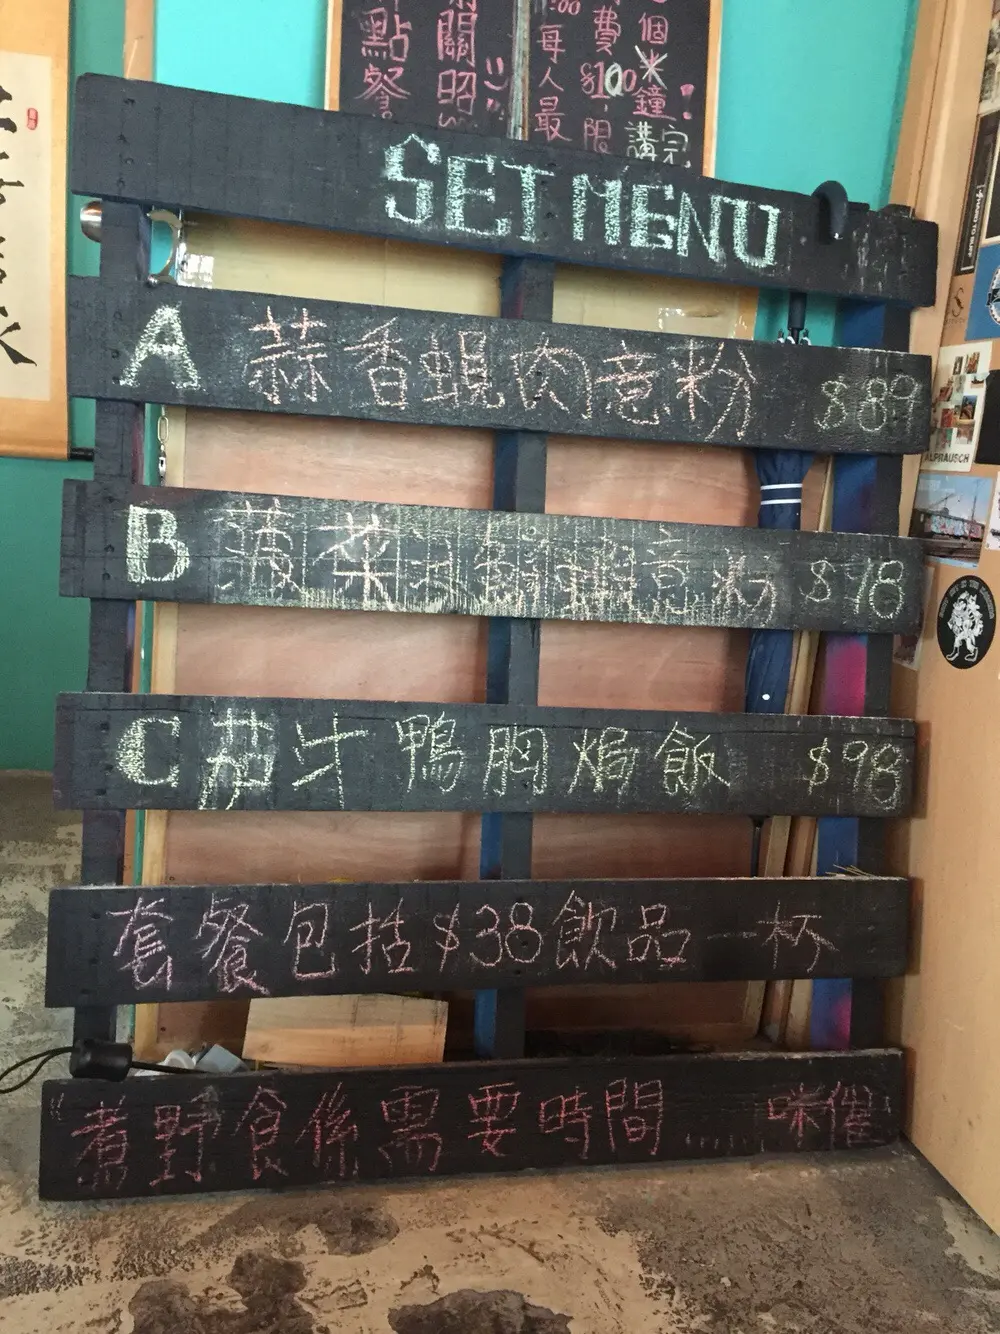 點餐
關昭
每人最
費$100,限
個
鐘!
講完
SET MENU
A 蒜香蜆肉意粉 $89
B 菠菜 意粉 $98
C 茄汁鴨胸焗飯 $98
套餐包括$38飲品一杯
"煮野食係需要時間 咪催
ALPRAUSCH